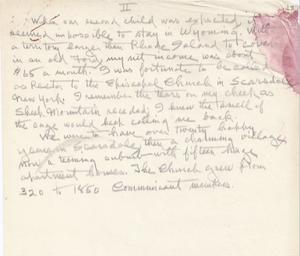 II
When our second child was expected it
seemed impossible to stay in Wyoming. With
a territory larger than Rhode Island to cover
in an old Ford my net income was about
$65 a month. I was fortunate to be called
as Rector to the Episcopal Church in Scarsdale
New York. I remember the tears on my cheek as
Sheep Mountain receded; I knew the smell of
the sage would keep calling me back.
We were to have over twenty happy
years in Scarsdale, then a charming village,
now a teeming suburb—with fifteen huge
apartment houses. The Church grew from
320 to 1850 Communicant members.